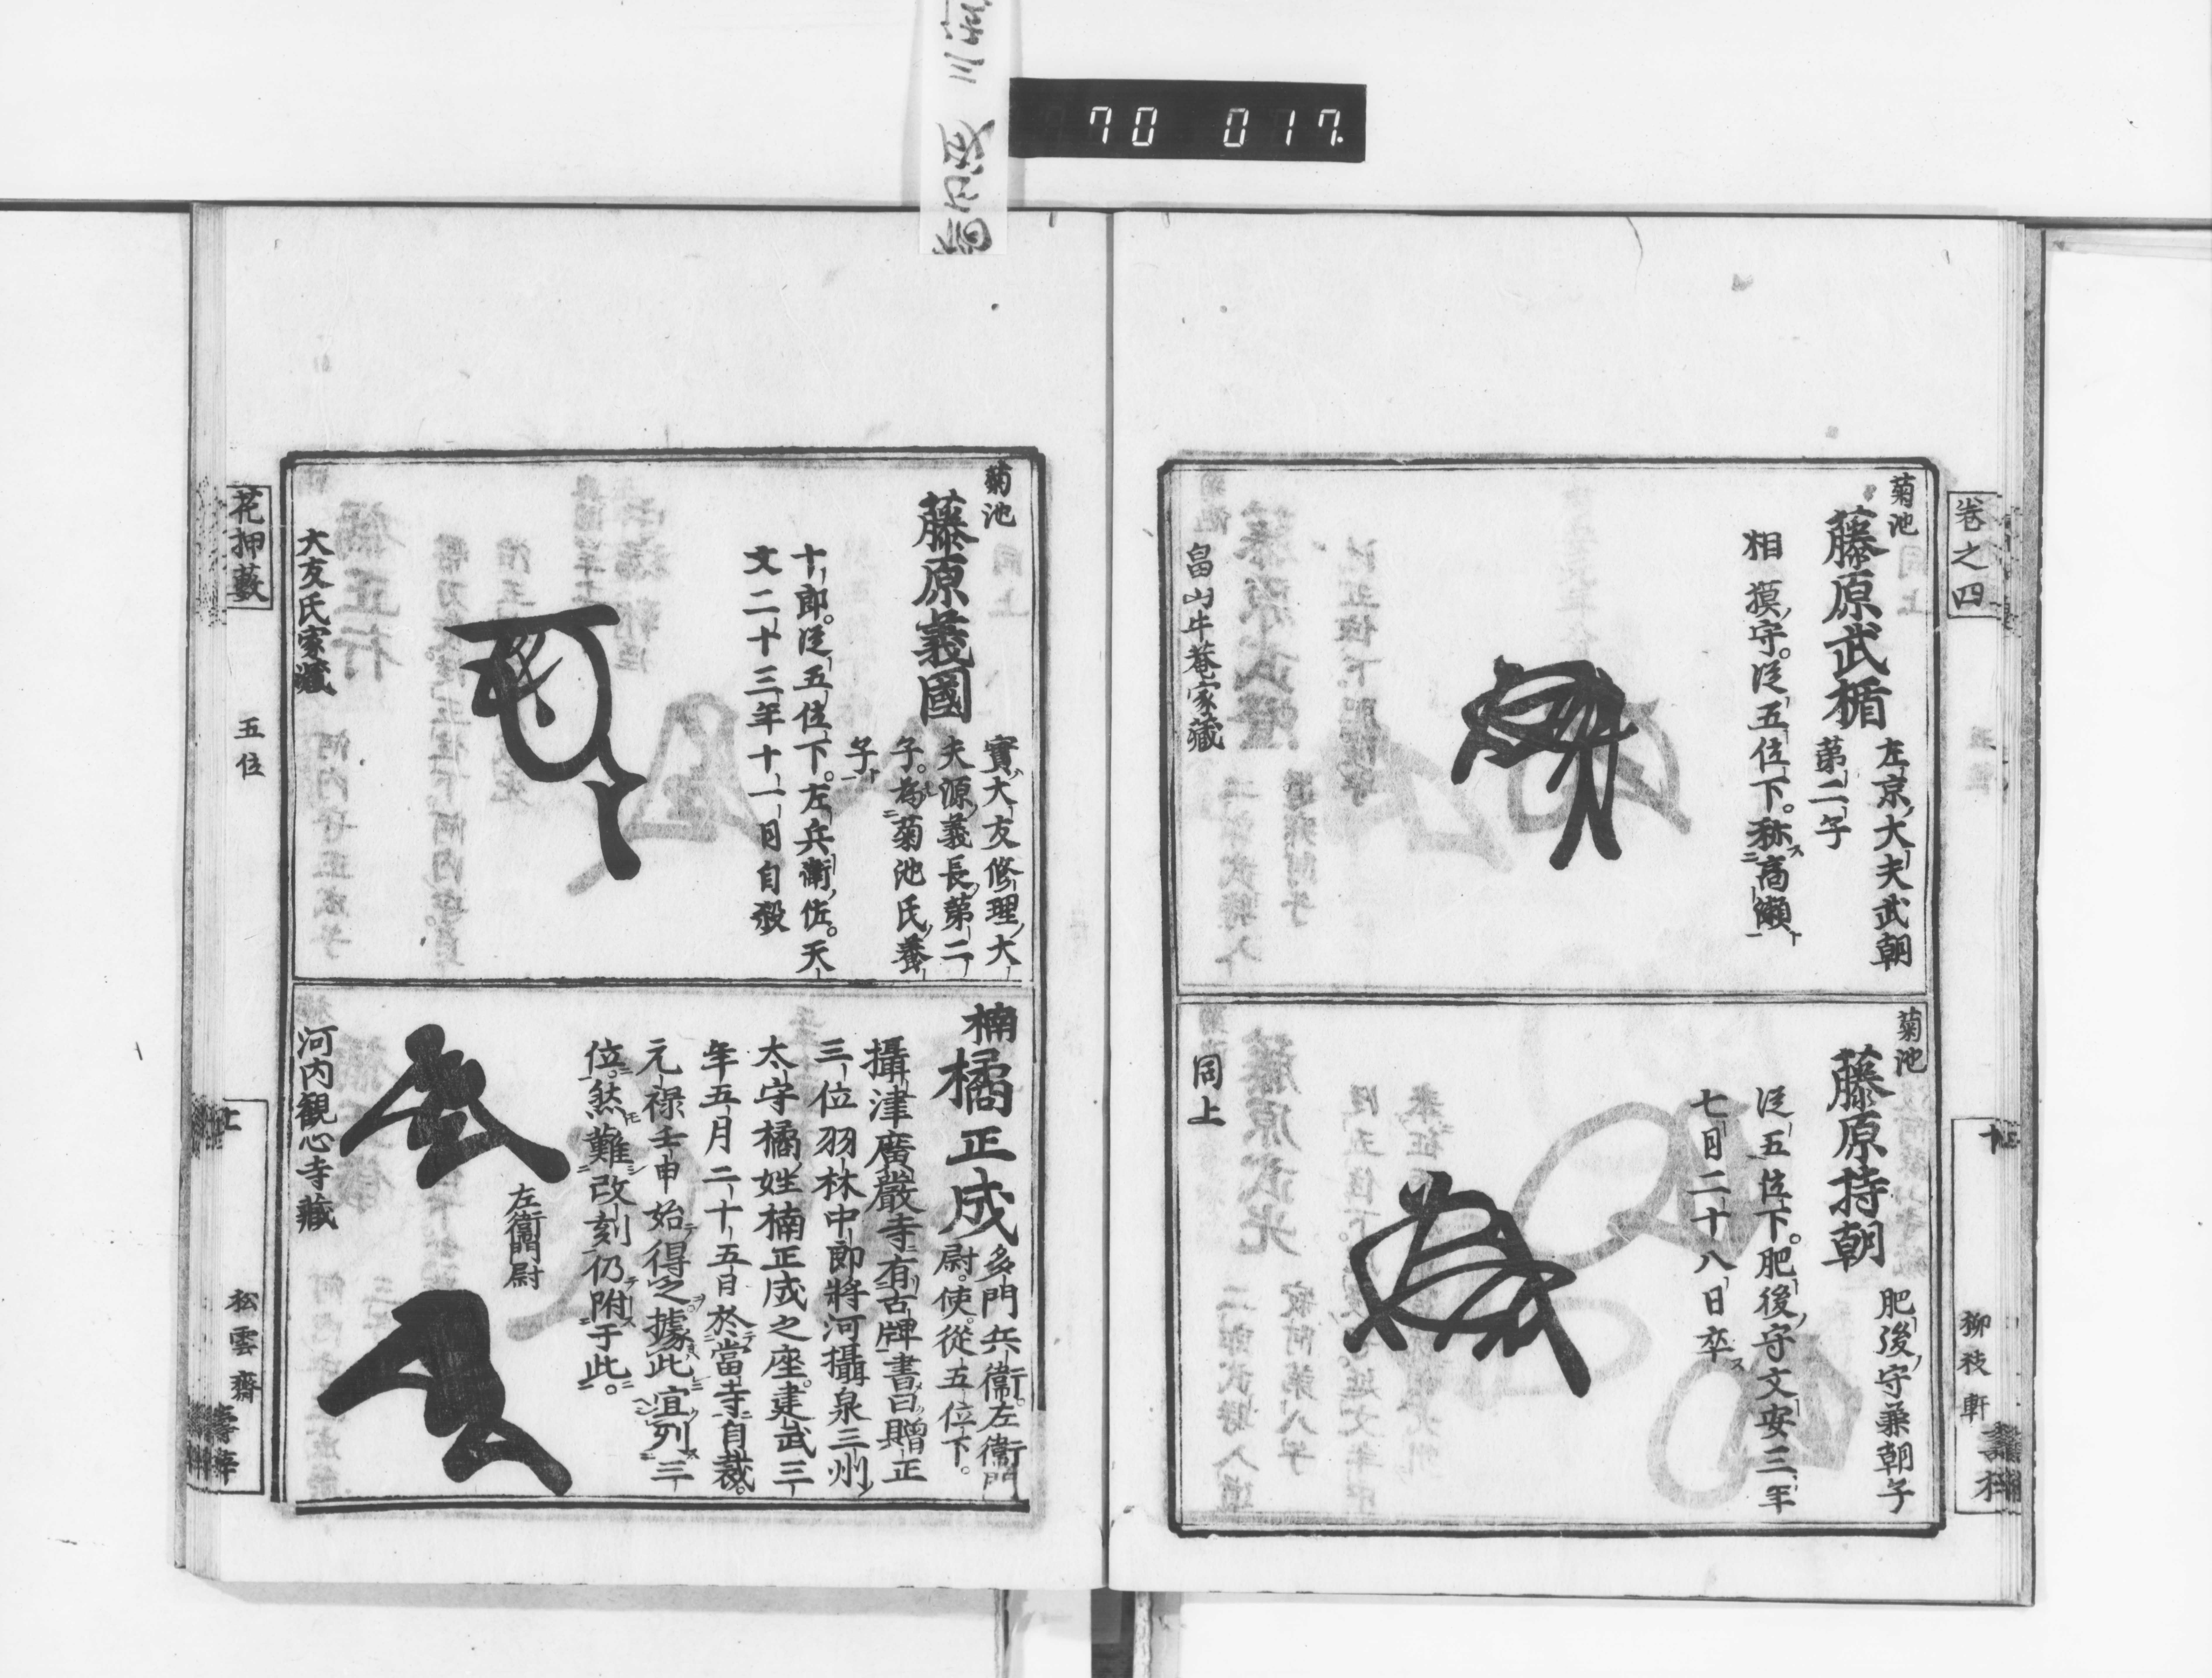 70 017
卷之四
十
柳枝軒
菊池
藤原武楯
左京大夫武朝
第二子
相摸守。従五位下。称高瀬
畠山牛菴家藏
菊池
藤原持朝
肥後守兼朝子
従五位下。肥後守文安三年
七月二十八日卒
同上
菊池
藤原義國
實大友修理大
夫源義長第二
子。為菊池氏養
子
十郎。従五位下。左兵衛佐。天
文二十三年十一月自殺
大友氏家藏
楠
橘正成
多門兵衞。左衞門
尉。使。從五位下。
攝津廣嚴寺有古牌書曰贈正
三位羽林中郎將河攝泉三州
太守橘姓楠正成之座。建武三
年五月二十五日於當寺自裁。
元禄壬申始得之據此宜列三
位。然難改刻仍附于此。
左衞門尉
河内観心寺藏
花押藪
五位
松雲齋